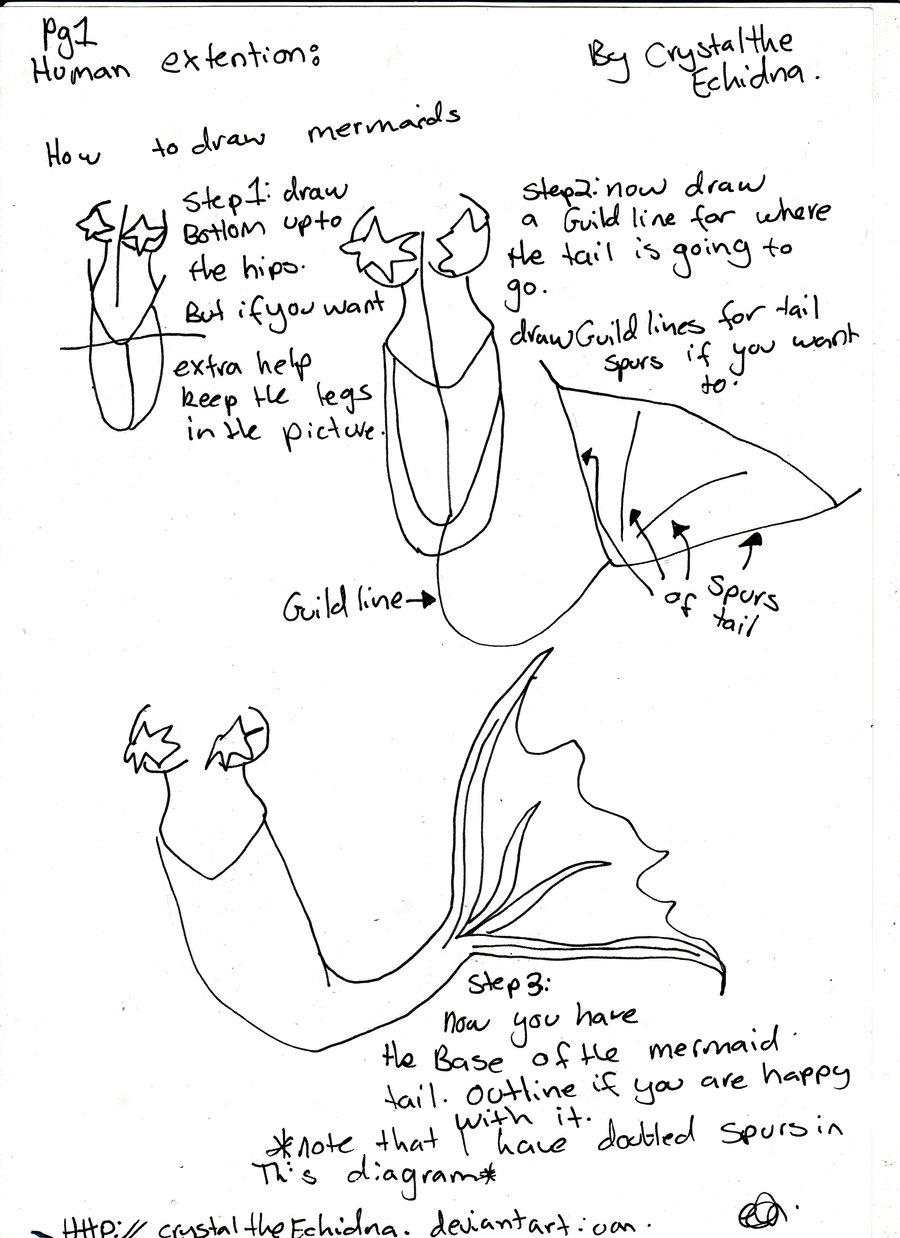 Pg1
Human extention:
By Crystalthe
Echidna.
How to draw mermaids
Step1: draw
Bottom upto
the hips.
But if you want
extra help
keep the legs
in the picture.
Step2: now draw
a Guild line for where
the tail is going to
go.
draw Guild lines for tail
spurs if you want
to.
Guild line
Spurs
of tail
Step 3:
now you have
the Base of the mermaid
tail. Outline if you are happy
with it.
*note that I have doubled spurs in
This diagram*
HttP:// crystaltheEchidna. deviantart.com.